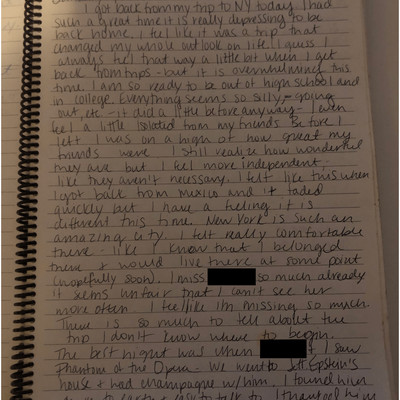 I got back from my trip to NY today. I had
such a great time it is really depressing to be
back home. I feel like it was a trip that
changed my whole outlook on life. I guess I
always feel that way a little bit when I get
back from trips - but it is overwhelming this
time. I am so ready to be out of high school and
in college. Everything seems so silly - going
out, etc - it did a little before anyway - I even
feel a little isolated from my friends. Before I
left I was on a high of how great my
friends were. I still realize how wonderful
they are but I feel more independent -
like they aren't necessary. I felt like this when
I got back from Mexico and it faded
quickly but I have a feeling it is
different this time. New York is such an
amazing city. I felt really comfortable
there - like I know that I belonged
there & would live there at some point
(hopefully soon). I miss so much already
it seems unfair that I can't see her
more often. I feel like I'm missing so much.
There is so much to tell about the
trip I don't know where to begin.
The best night was when & I saw
Phantom of the Opera. We went to Jeff Epstein's
house & had champagne w/ him. I found him
to earth & easy to talk to. I thanked him